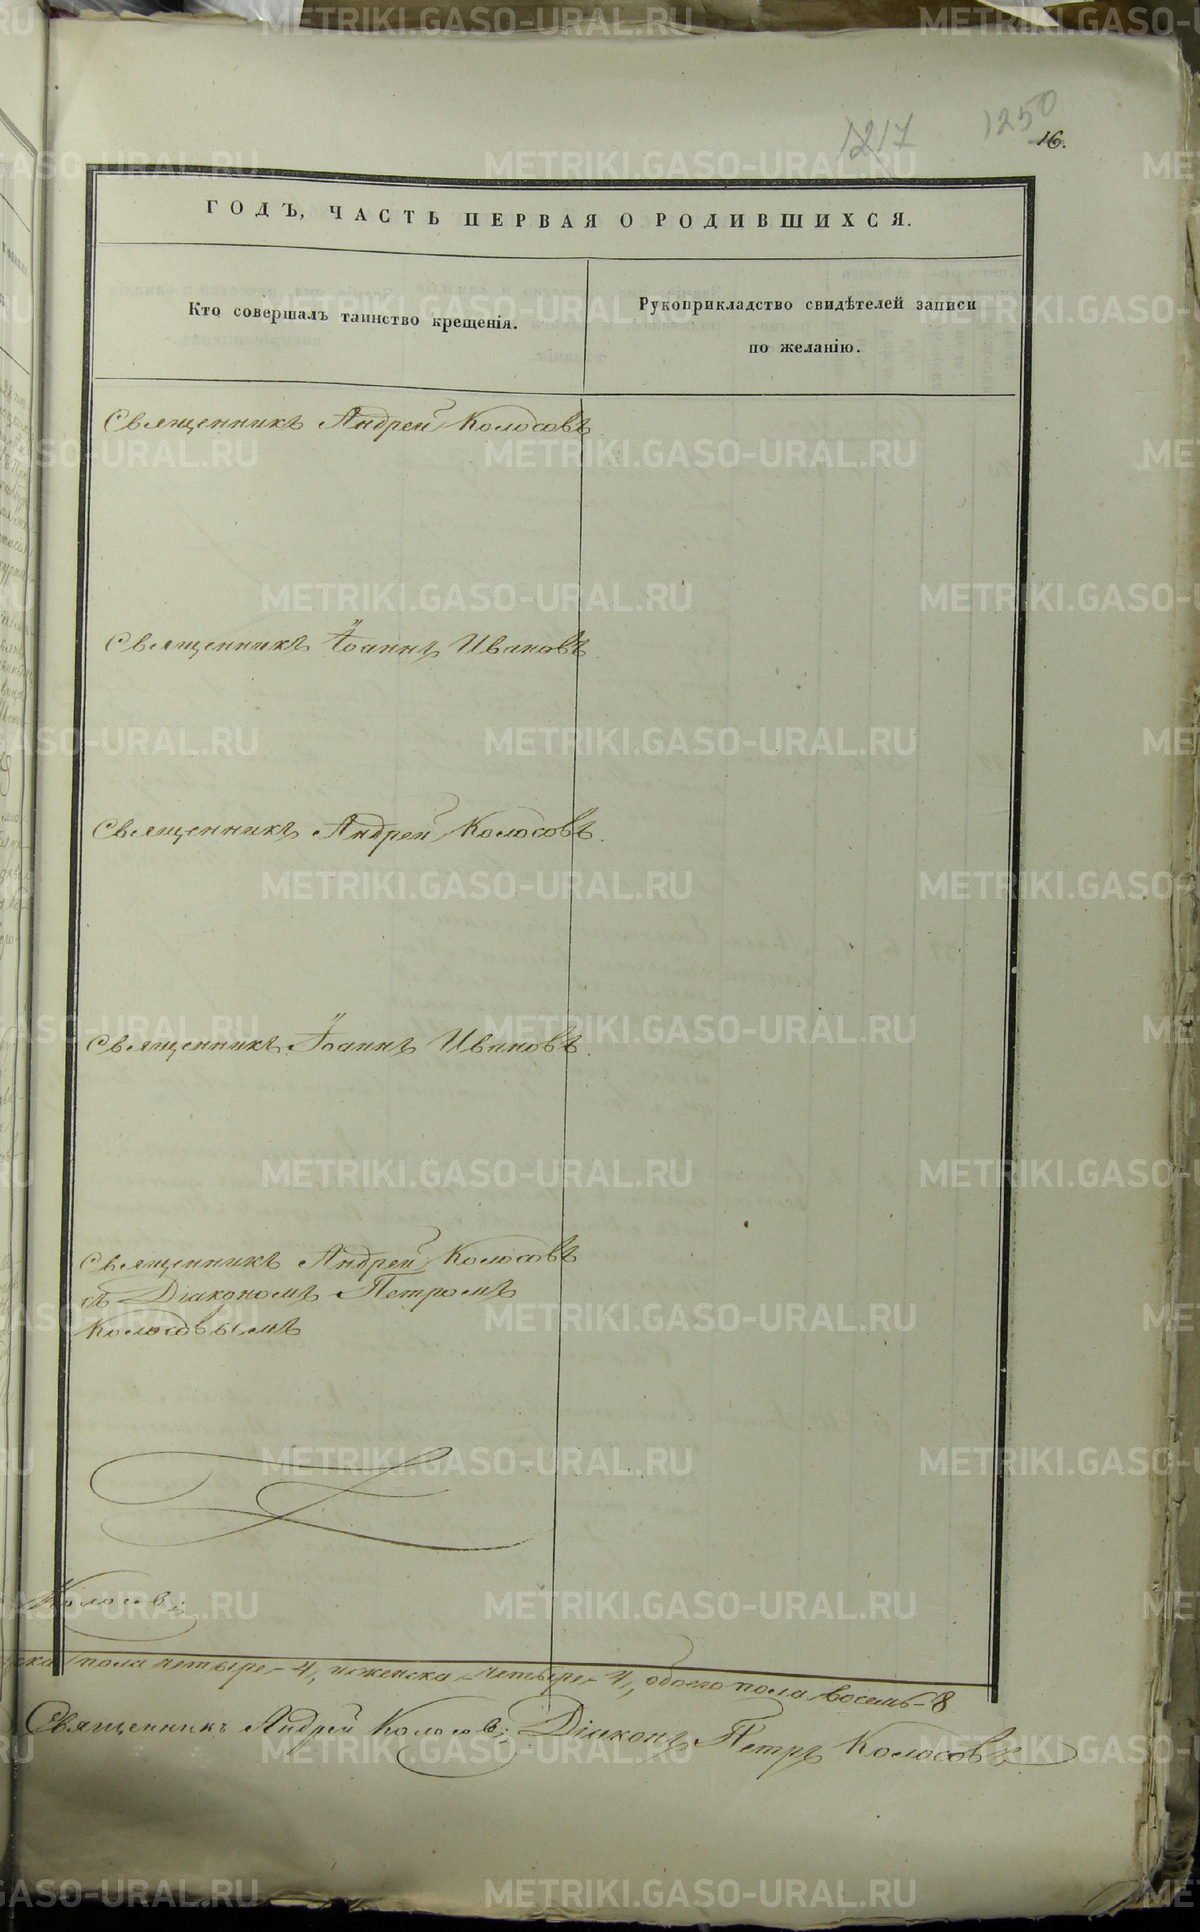 1217 1250
16.
ГОДЪ, ЧАСТЬ ПЕРВАЯ О РОДИВШИХСЯ.
Кто совершалъ таинство крещенія.
Рукоприкладство свидѣтелей записи
по желанію.
Священникъ Андрей Колосовъ
Священникъ Іоаннъ Ивановъ
Священникъ Андрей Колосовъ.
Священникъ Іоаннъ Ивановъ.
Священникъ Андрей Колосовъ
съ Діакономъ Петромъ
Колосовымъ
Колосовъ;
пола четыре-4, и женска-четыре-4, обоего пола восемь-8
Священникъ Андрей Колосовъ; Діаконъ Петръ Колосовъ
METRIKI.GASO-URAL.RU